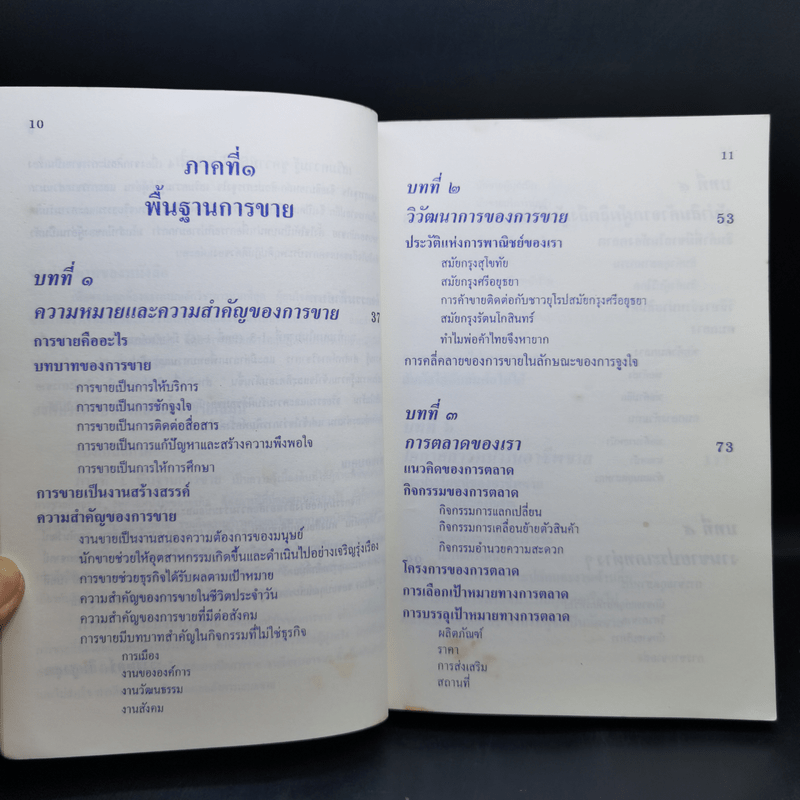 10
ภาคที่๑
พื้นฐานการขาย
บทที่ ๑
ความหมายและความสำคัญของการขาย 37
การขายคืออะไร
บทบาทของการขาย
การขายเป็นการให้บริการ
การขายเป็นการชักจูงใจ
การขายเป็นการติดต่อสื่อสาร
การขายเป็นการแก้ปัญหาและสร้างความพึงพอใจ
การขายเป็นการให้การศึกษา
การขายเป็นงานสร้างสรรค์
ความสำคัญของการขาย
งานขายเป็นงานสนองความต้องการของมนุษย์
นักขายช่วยให้อุตสาหกรรมเกิดขึ้นและดำเนินไปอย่างเจริญรุ่งเรือง
การขายช่วยธุรกิจได้รับผลตามเป้าหมาย
ความสำคัญของการขายในชีวิตประจำวัน
ความสำคัญของการขายที่มีต่อสังคม
การขายมีบทบาทสำคัญในกิจกรรมที่ไม่ใช่ธุรกิจ
การเมือง
งานขององค์การ
งานวัฒนธรรม
งานสังคม
11
บทที่ ๒
วิวัฒนาการของการขาย 53
ประวัติแห่งการพาณิชย์ของเรา
สมัยกรุงสุโขทัย
สมัยกรุงศรีอยุธยา
การค้าขายติดต่อกับชาวยุโรปสมัยกรุงศรีอยุธยา
สมัยกรุงรัตนโกสินทร์
ทำไมพ่อค้าไทยจึงหายาก
การคลี่คลายของการขายในลักษณะของการจูงใจ
บทที่ ๓
การตลาดของเรา 73
แนวคิดของการตลาด
กิจกรรมของการตลาด
กิจกรรมการแลกเปลี่ยน
กิจกรรมการเคลื่อนย้ายตัวสินค้า
กิจกรรมอำนวยความสะดวก
โครงการของการตลาด
การเลือกเป้าหมายทางการตลาด
การบรรลุเป้าหมายทางการตลาด
ผลิตภัณฑ์
ราคา
การส่งเสริม
สถานที่